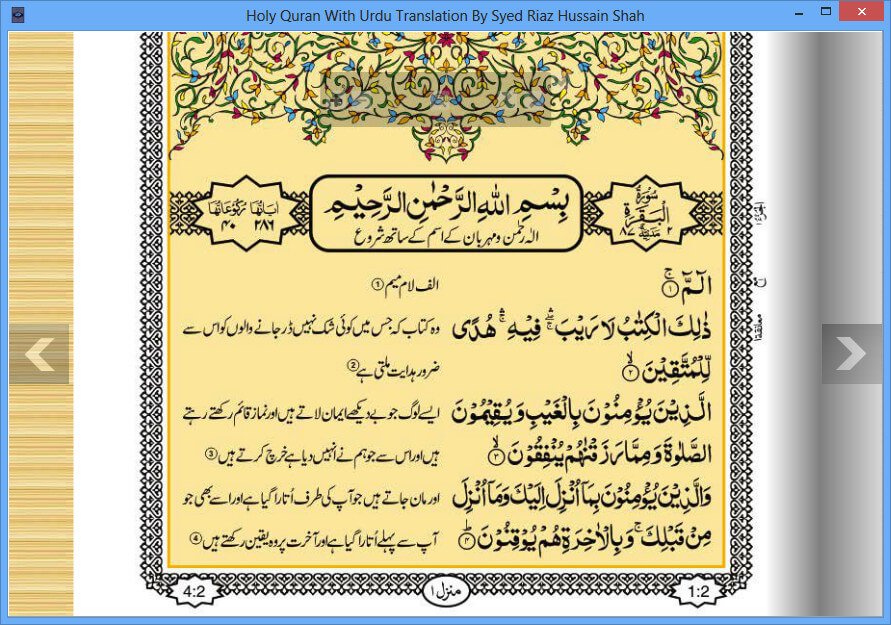 Holy Quran With Urdu Translation By Syed Riaz Hussain Shah
سُوْرَةُ
الْبَقَرَةِ
٢ مَدَنِيَّةٌ ٨٧
بِسْمِ اللهِ الرَّحْمٰنِ الرَّحِيْمِ
الٰہ رحمٰن و مہربان کے اسم کے ساتھ شروع
اٰيَاتُهَا رُكُوْعَاتُهَا
٢٨٦ ٤٠
الٓمّٓ ۚ﴿۱﴾
الف لام میم ①
ذٰلِكَ الْكِتٰبُ لَا رَيْبَ ۛۖ فِيْهِ ۛۚ هُدًى
وہ کتاب کہ جس میں کوئی شک نہیں ڈر جانے والوں کو اس سے
لِّلْمُتَّقِيْنَ ۙ﴿۲﴾
ضرور ہدایت ملتی ہے ②
الَّذِيْنَ يُؤْمِنُوْنَ بِالْغَيْبِ وَيُقِيْمُوْنَ
ایسے لوگ جو بے دیکھے ایمان لاتے ہیں اور نماز قائم رکھتے رہتے
الصَّلٰوةَ وَمِمَّا رَزَقْنٰهُمْ يُنْفِقُوْنَ ۙ﴿۳﴾
ہیں اور اس سے جو ہم نے انہیں دیا ہے خرچ کرتے ہیں ③
وَالَّذِيْنَ يُؤْمِنُوْنَ بِمَاۤ اُنْزِلَ اِلَيْكَ وَمَاۤ اُنْزِلَ
اور مان جاتے ہیں جو آپ کی طرف اُتارا گیا ہے اور اسے بھی جو
مِنْ قَبْلِكَ ۚ وَبِالْاٰخِرَةِ هُمْ يُوْقِنُوْنَ ؕ﴿۴﴾
آپ سے پہلے اُتارا گیا ہے اور آخرت پر وہ یقین رکھتے ہیں ④
معانقة
1:2
منزل ١
4:2